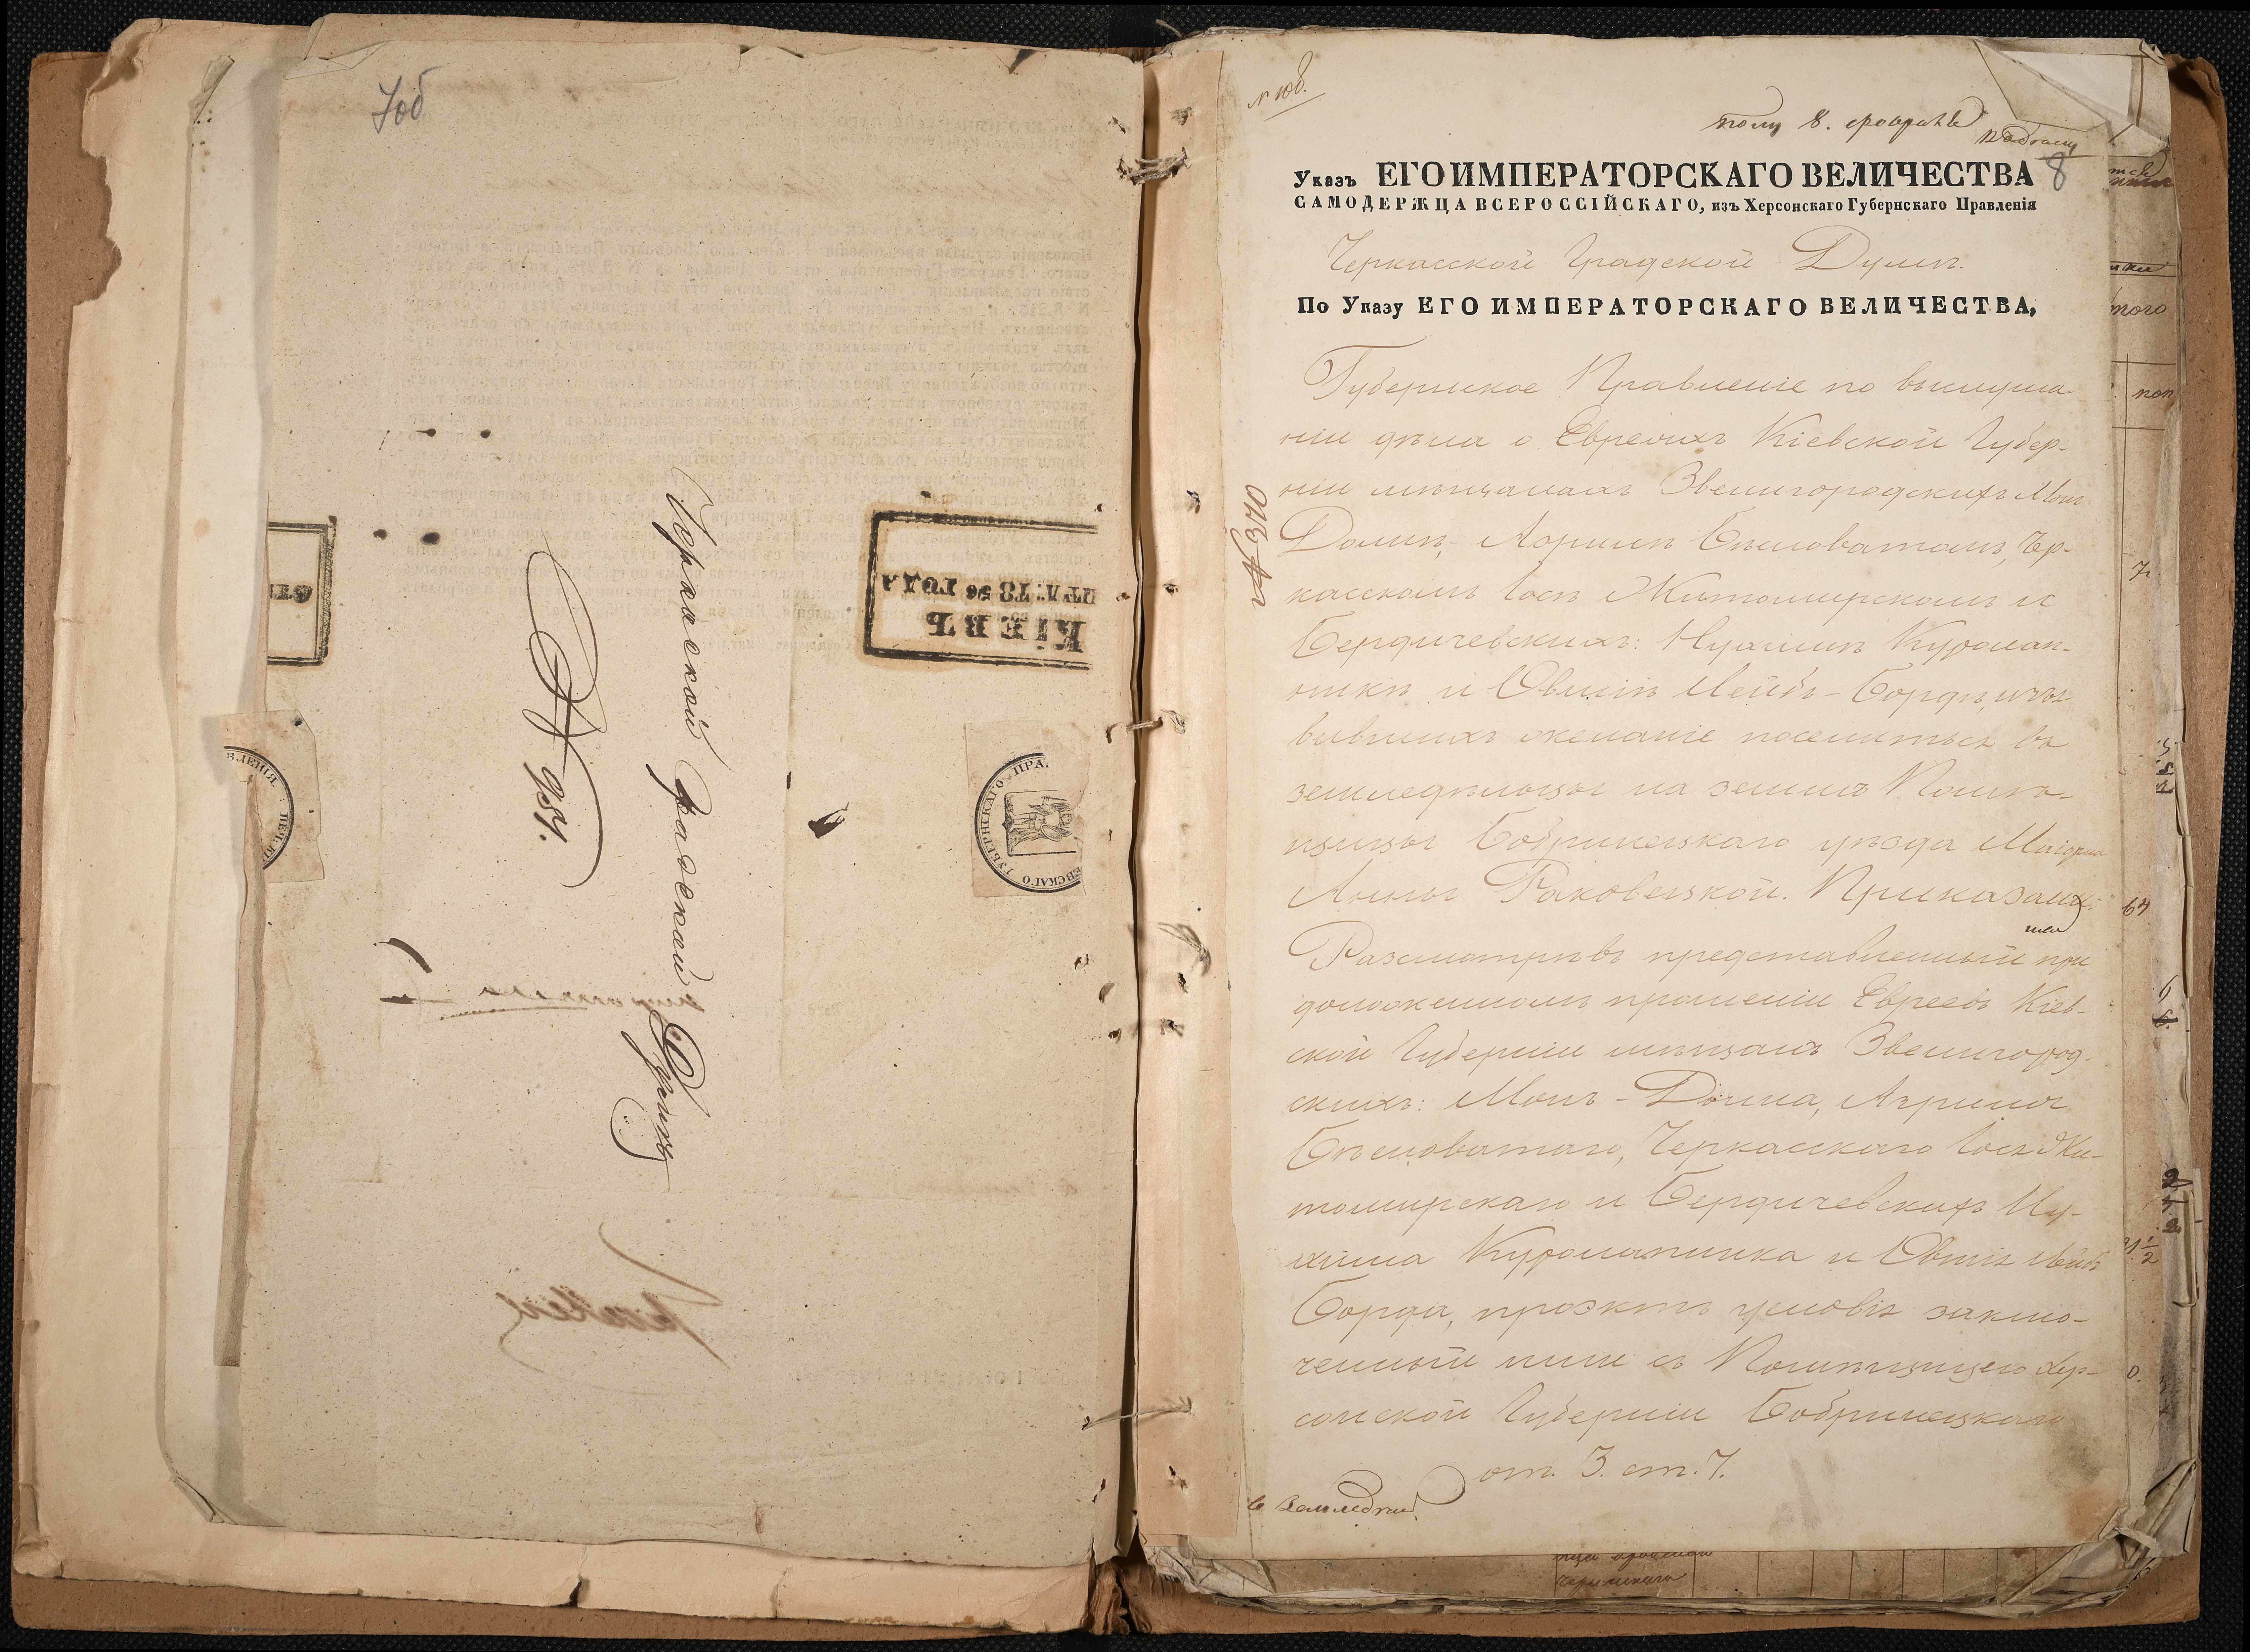 7об
Черкасской Градской Думѣ
№ 957.
КІЕВЪ
1856 ГОДА
ЕВСКАГО ГУБЕРНСКАГО ПРА.
ВЛЕНІЯ
№ 106.
полу 8. февраля
8
Указъ ЕГО ИМПЕРАТОРСКАГО ВЕЛИЧЕСТВА
САМОДЕРЖЦА ВСЕРОССІЙСКАГО, изъ Херсонскаго Губернскаго Правленія
Черкасской Градской Думѣ.
По Указу ЕГО ИМПЕРАТОРСКАГО ВЕЛИЧЕСТВА,
Губернское Правленіе по выслуша-
ніи дѣла о Евреяхъ Кіевской Губер-
ніи мѣщанахъ Звенигородскихъ Мош.
Долинѣ, Аврумѣ Бѣловатомъ, Чер-
касскомъ Іосѣ Житомирскомъ и
Бердичевскихъ: Нухимѣ Куролап-
никѣ и Овшіѣ Лейбѣ-Бордѣ, изъя-
вившихъ желаніе поселиться въ
земледѣльцы на землѣ Помѣ-
щицы Бобринецкаго уѣзда Маіорши
Анны Раковецкой. Приказали:
Разсмотрѣвъ представленный при
доложенномъ прошеніи Евреевъ Кіев-
ской Губерніи мѣщанъ Звенигород-
скихъ: Мош. - Долина, Аврума
Бѣловатаго, Черкасскаго Іося Жи-
томирскаго и Бердичевскихъ Ну-
хима Куролапника и Овшія Лейбы
Борда, проэктъ условія заклю-
ченный ими съ Помѣщицею Хер-
сонской Губерніи Бобринецкаго
от. 3. ст. 7.